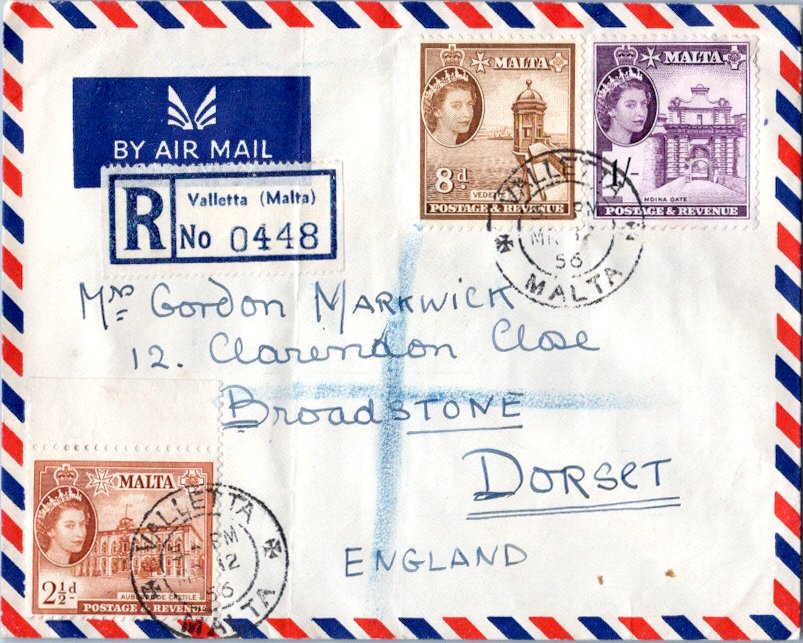 BY AIR MAIL
R
Valletta (Malta)
No 0448
MALTA
8d
POSTAGE & REVENUE
MALTA
1/-
MDINA GATE
POSTAGE & REVENUE
VALLETTA
PM
12
56
MALTA
Mrs Gordon MARKWICK
12. Clarendon Close
BroadSTONE
DORSET
ENGLAND
MALTA
2½d
AUBERGE DE CASTILE
POSTAGE & REVENUE
VALLETTA
PM
12
56
MALTA